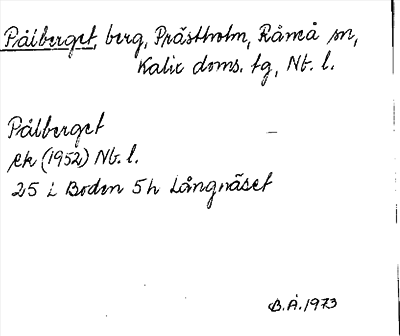 Pålberget, berg, Prästholm, Råneå sn,
Kalix doms. tg, Nb. l.
Pålberget
ek (1952) Nb. l.
25 L Boden 5h Långnäset
B.Å. 1973